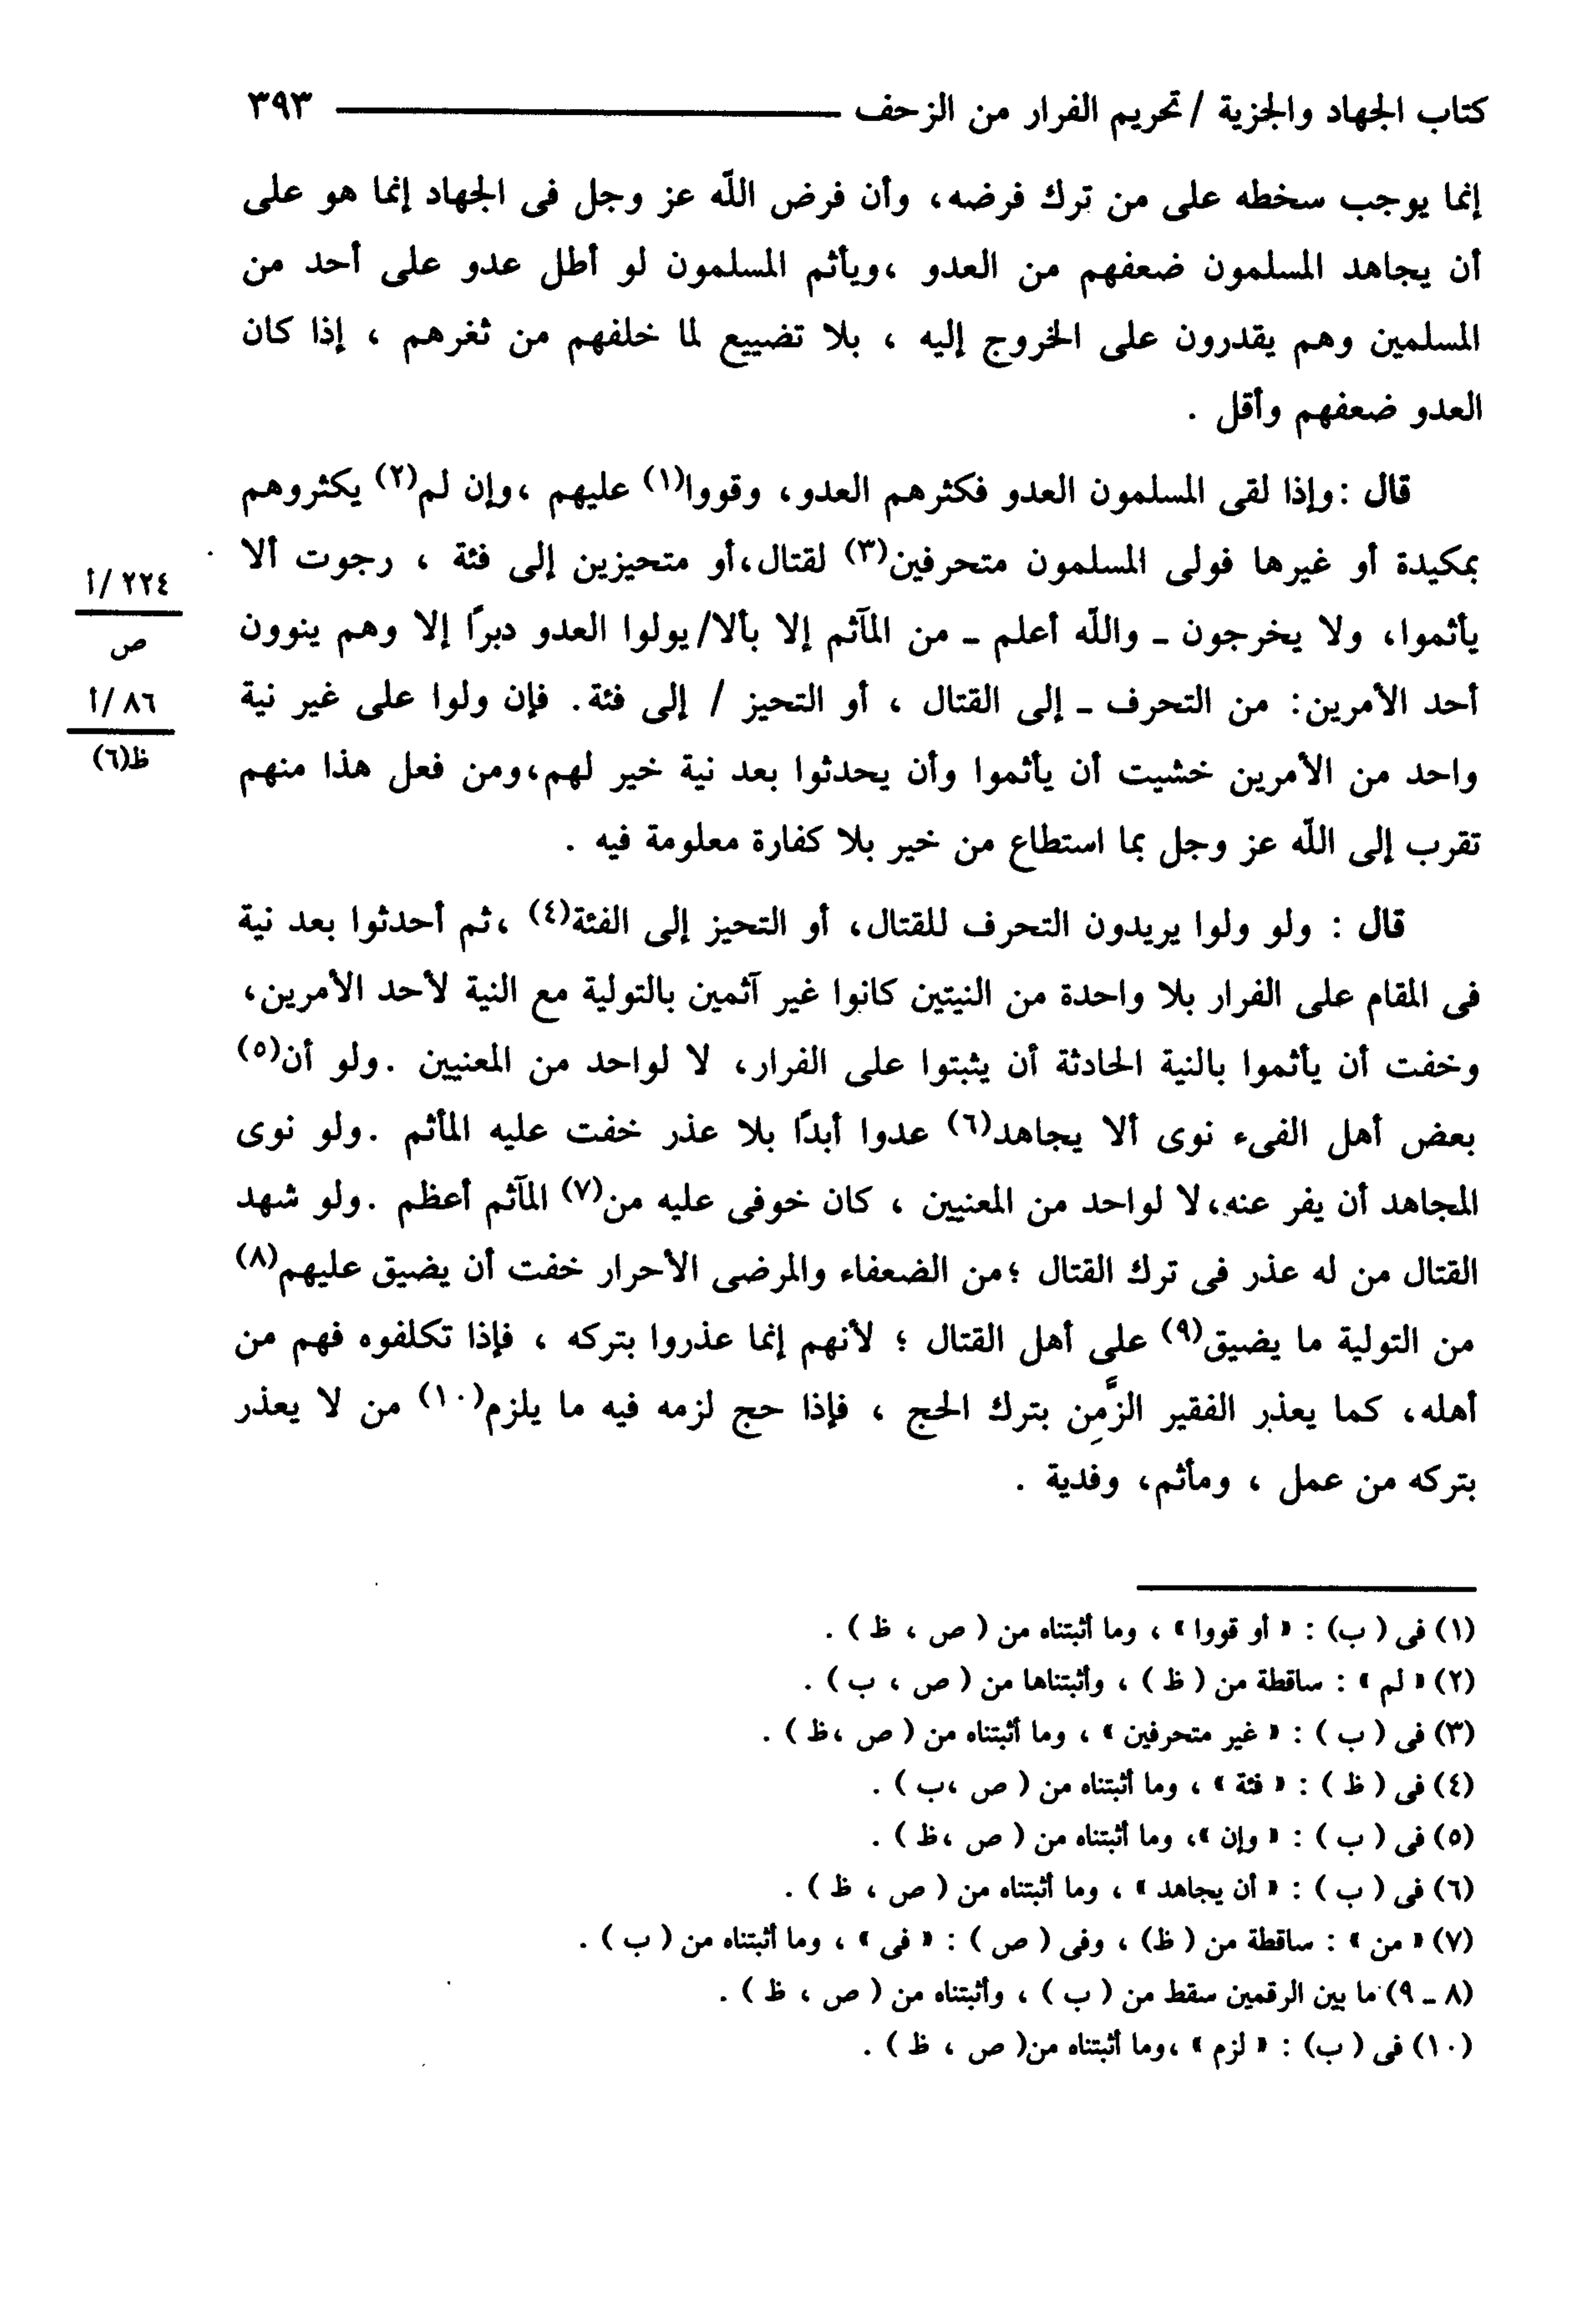 كتاب الجهاد والجزية / تحريم الفرار من الزحف ٣٩٣
إنما يوجب سخطه على من ترك فرضه، وأن فرض اللّه عز وجل فى الجهاد إنما هو على
أن يجاهد المسلمون ضعفهم من العدو ،ويأثم المسلمون لو أطل عدو على أحد من
المسلمين وهم يقدرون على الخروج إليه ، بلا تضييع لما خلفهم من ثغرهم ، إذا كان
العدو ضعفهم وأقل .
قال :وإذا لقى المسلمون العدو فكثرهم العدو، وقووا(١) عليهم ،وإن لم(٢) يكثروهم
بمكيدة أو غيرها فولى المسلمون متحرفين(٣) لقتال،أو متحيزين إلى فئة ، رجوت ألا
يأثموا، ولا يخرجون - واللّه أعلم - من المآثم إلا بألا/يولوا العدو دبرًا إلا وهم ينوون
أحد الأمرين: من التحرف - إلى القتال ، أو التحيز / إلى فئة. فإن ولوا على غير نية
واحد من الأمرين خشيت أن يأثموا وأن يحدثوا بعد نية خير لهم،ومن فعل هذا منهم
تقرب إلى اللّه عز وجل بما استطاع من خير بلا كفارة معلومة فيه .
قال : ولو ولوا يريدون التحرف للقتال، أو التحيز إلى الفئة(٤) ،ثم أحدثوا بعد نية
فى المقام على الفرار بلا واحدة من النيتين كانوا غير آثمين بالتولية مع النية لأحد الأمرين،
وخفت أن يأثموا بالنية الحادثة أن يثبتوا على الفرار، لا لواحد من المعنيين .ولو أن(٥)
بعض أهل الفىء نوى ألا يجاهد(٦) عدوا أبدًا بلا عذر خفت عليه المأثم .ولو نوى
المجاهد أن يفر عنه،لا لواحد من المعنيين ، كان خوفى عليه من(٧) المآثم أعظم .ولو شهد
القتال من له عذر فى ترك القتال ؛من الضعفاء والمرضى الأحرار خفت أن يضيق عليهم(٨)
من التولية ما يضيق(٩) على أهل القتال ؛ لأنهم إنما عذروا بتركه ، فإذا تكلفوه فهم من
أهله، كما يعذر الفقير الزَّمِن بترك الحج ، فإذا حج لزمه فيه ما يلزم(١٠) من لا يعذر
بتركه من عمل ، ومأثم، وفدية .
٢٢٤/أ
ص
٨٦/أ
ظ(٦)
(١) فى ( ب) : « أو قووا » ، وما أثبتناه من ( ص ، ظ ) .
(٢) « لم » : ساقطة من ( ظ ) ، وأثبتناها من ( ص ، ب ) .
(٣) فى ( ب ) : « غير متحرفين » ، وما أثبتناه من ( ص ،ظ ) .
(٤) فى ( ظ ) : « فئة » ، وما أثبتناه من ( ص ،ب ) .
(٥) فى ( ب ) : « وإن »، وما أثبتناه من ( ص ،ظ ) .
(٦) فى ( ب ) : « أن يجاهد » ، وما أثبتناه من ( ص ، ظ ) .
(٧) « من » : ساقطة من ( ظ) ، وفى ( ص ) : « فى » ، وما أثبتناه من ( ب ) .
(٨ - ٩) ما بين الرقمين سقط من ( ب ) ، وأثبتناه من ( ص ، ظ ) .
(١٠) فى ( ب) : « لزم » ،وما أثبتناه من( ص ، ظ ) .